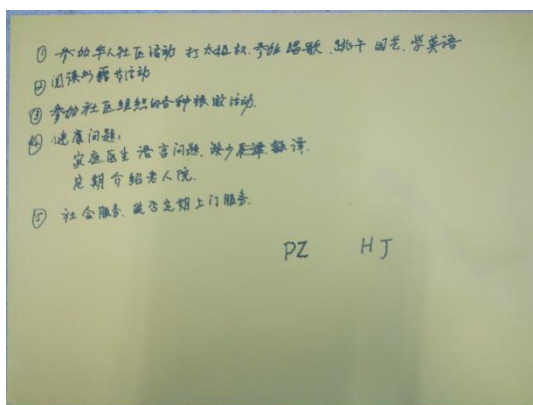 ① 参加华人社区活动 打太极拳.参加唱歌.跳午 园艺.学英语
② 阅读书籍等活动
③ 参加社区组织的各种旅遊活动.
④ 健康问题:
家庭医生语言问题.缺少翻译.
定期介绍老人院.
⑤ 社会服务.能否定期上门服务.
PZ HJ